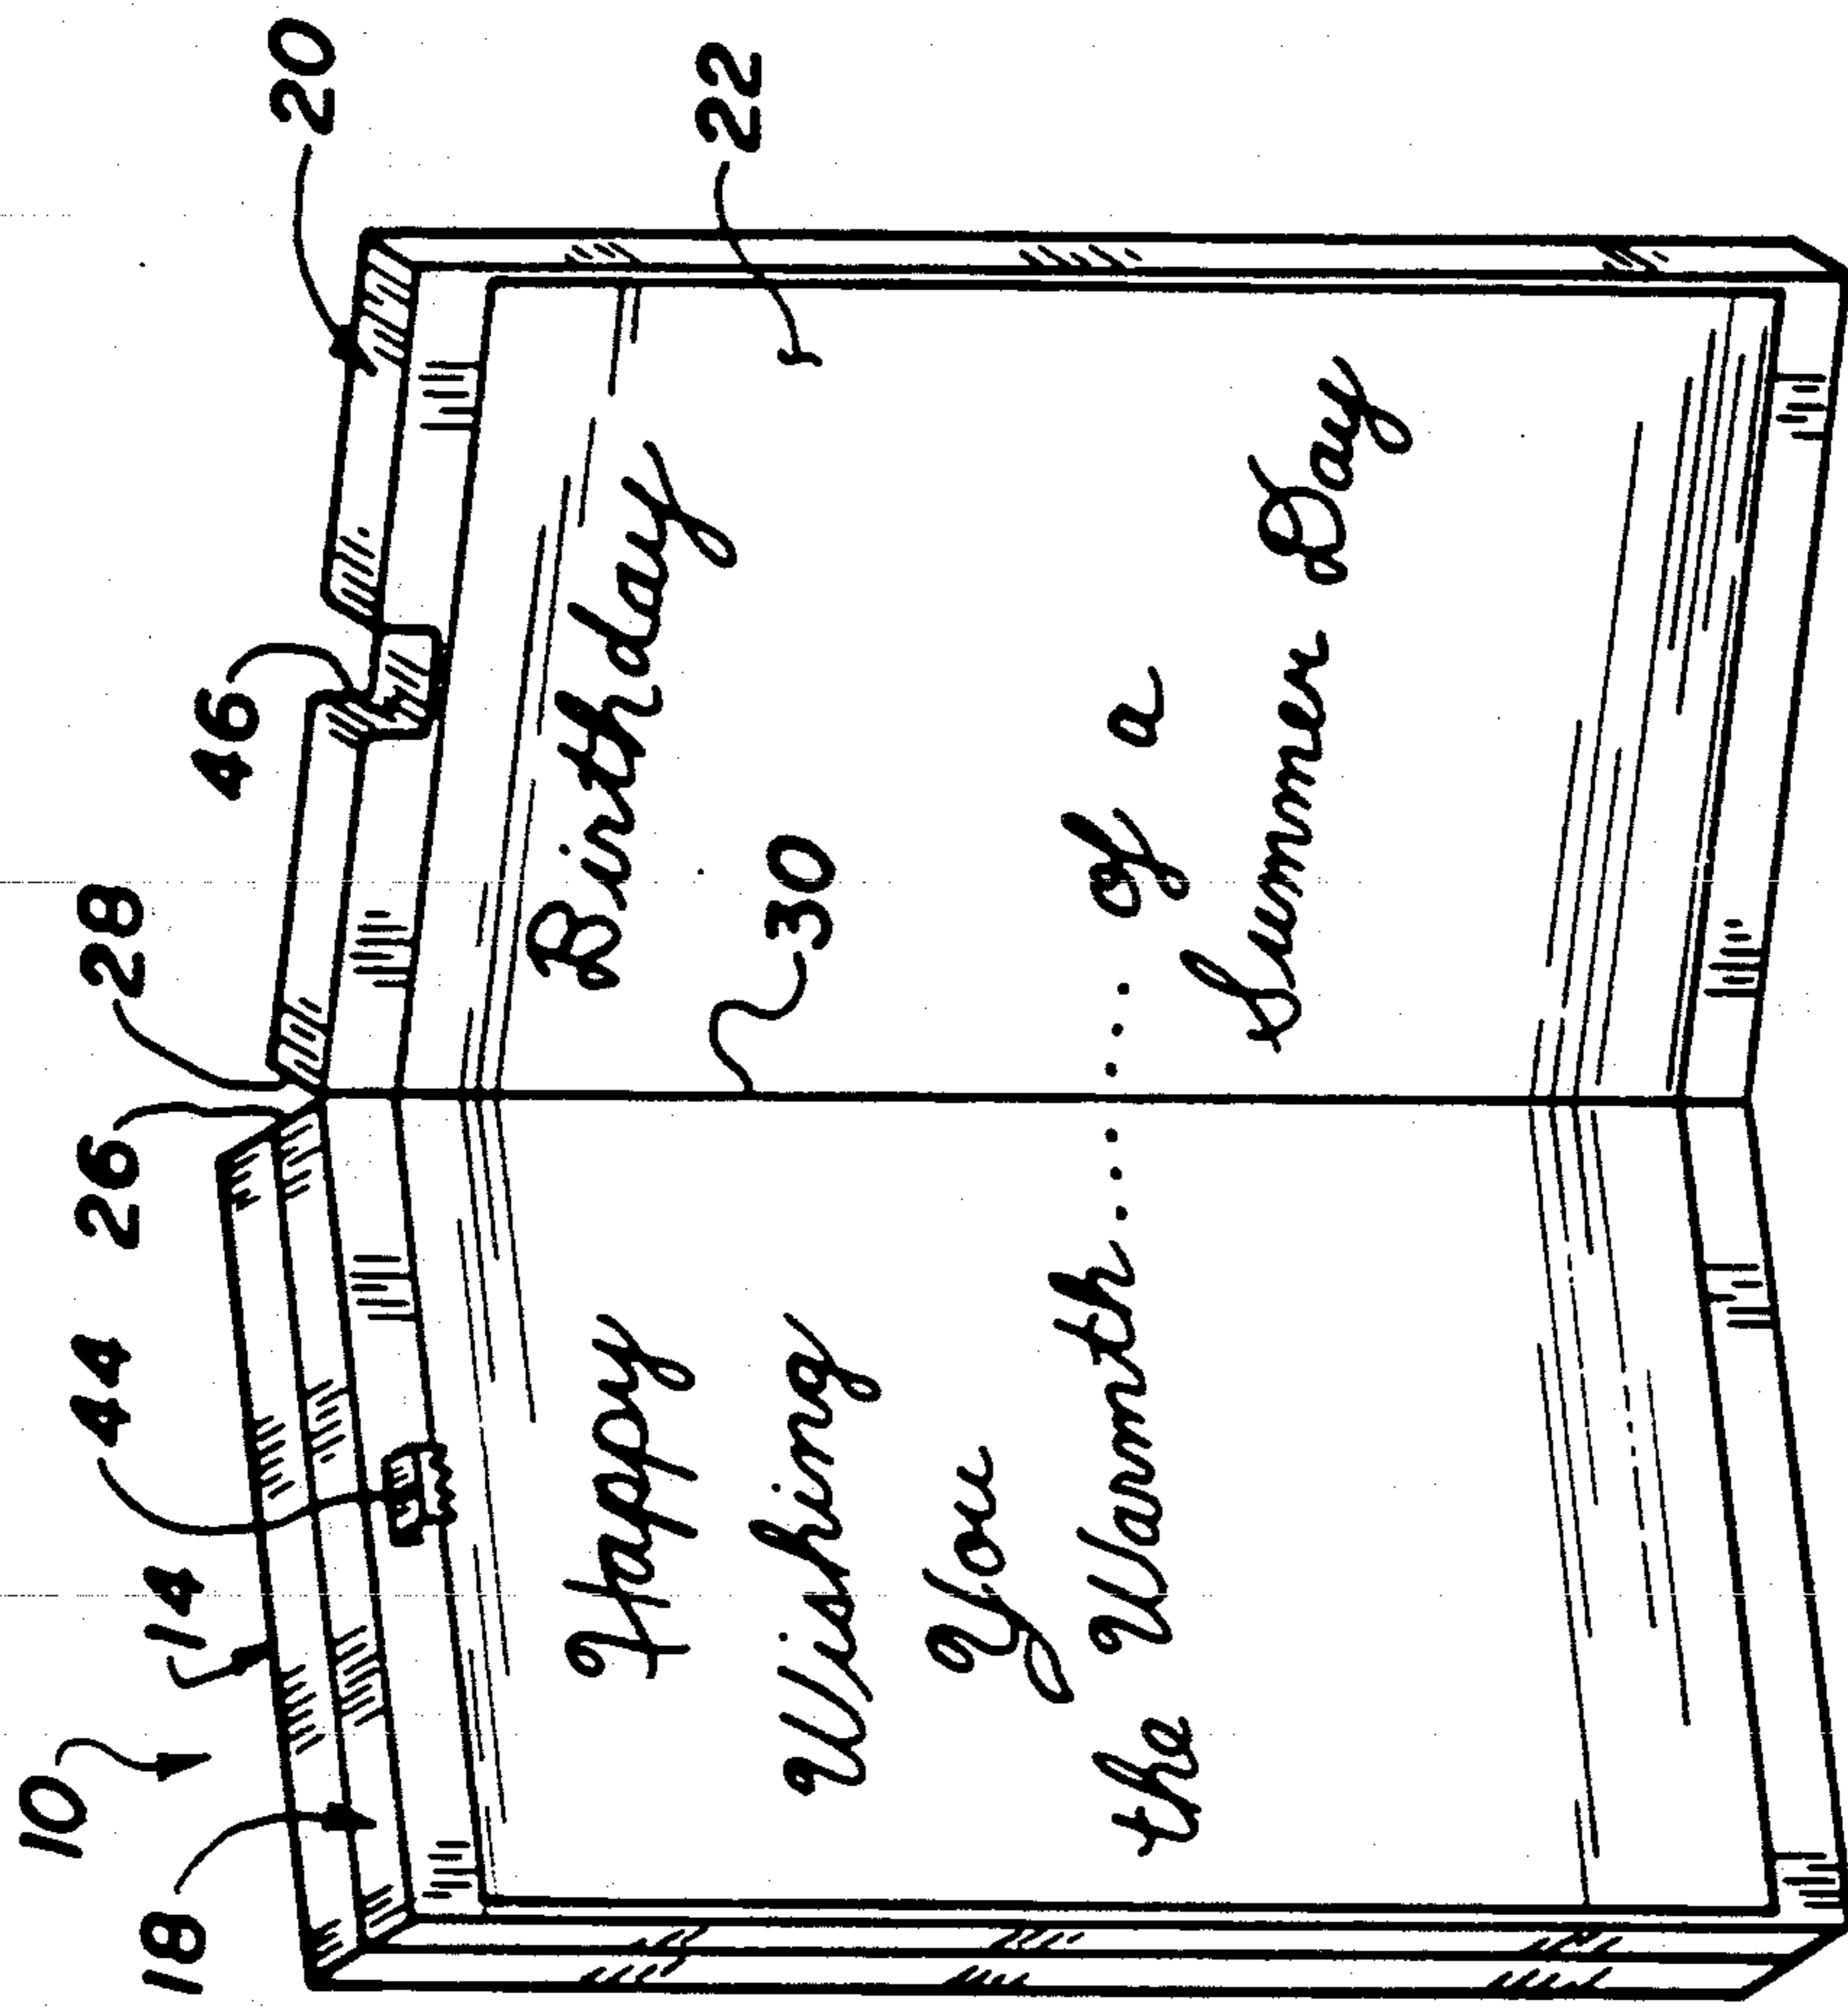 10
18 14 44 26 28 46 20
22
30
Happy Birthday
Wishing
You
the Warmth . . . . . . of a
Summer Day